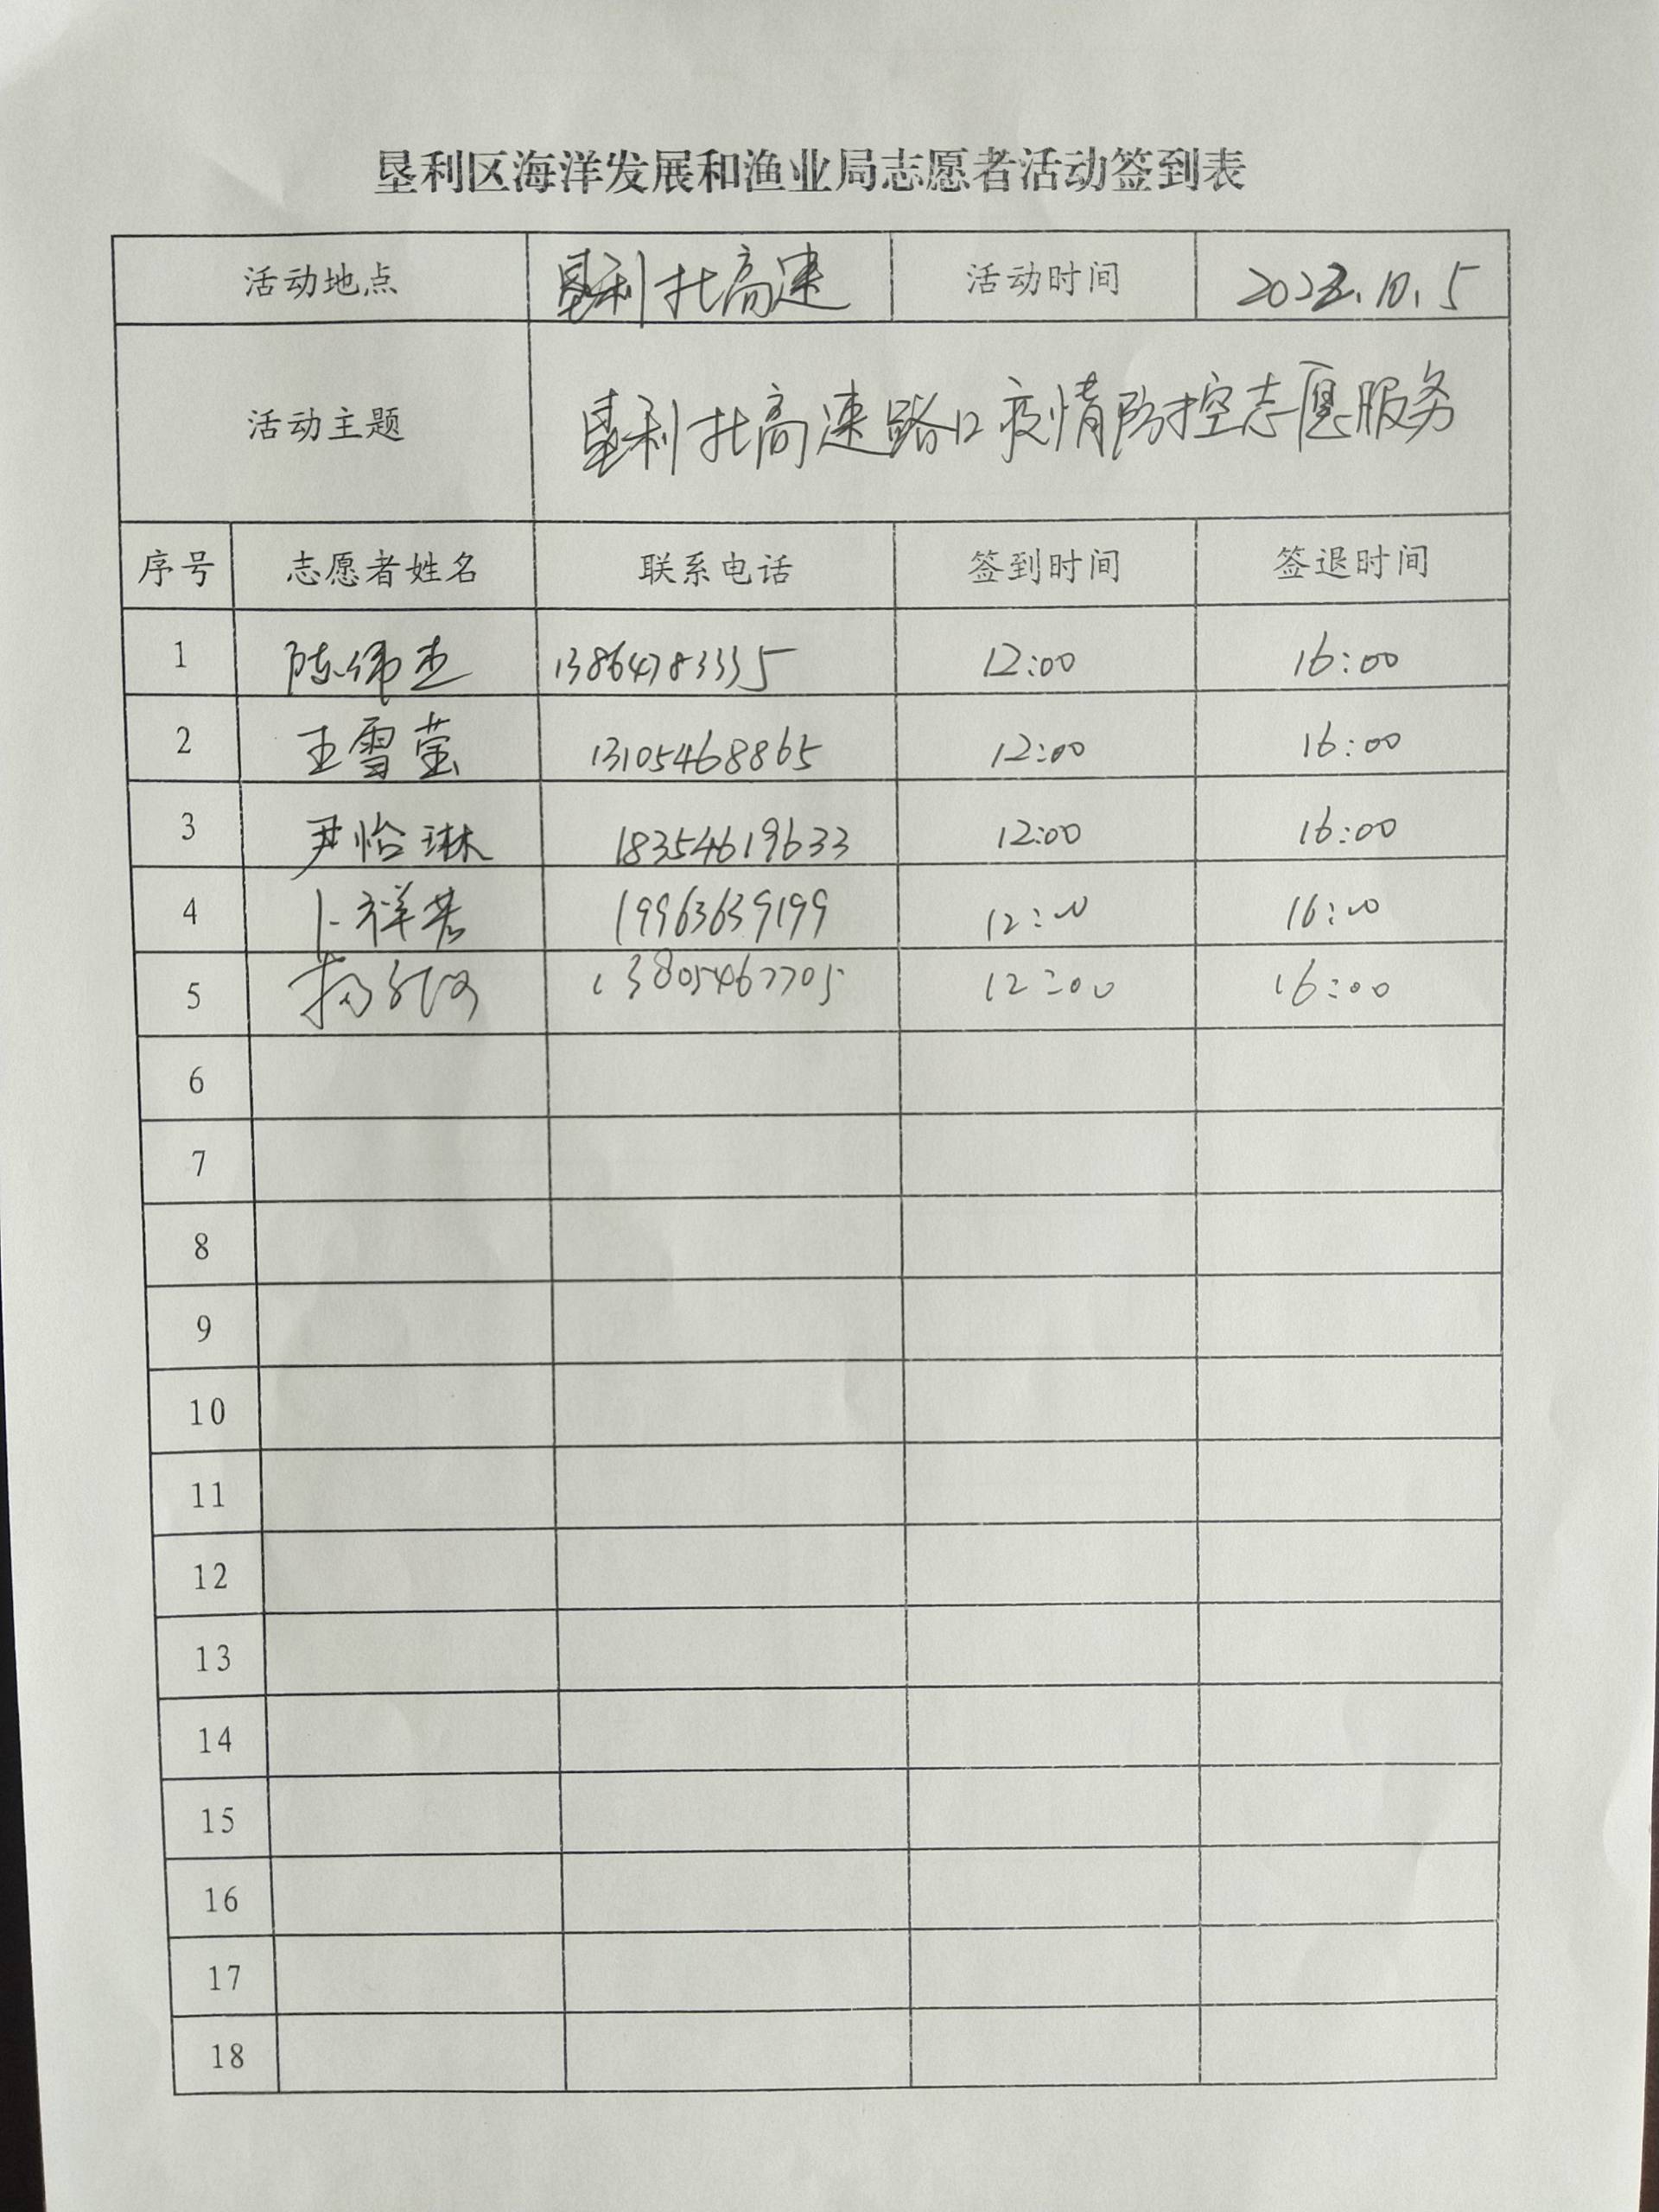 垦利区海洋发展和渔业局志愿者活动签到表
活动地点 垦利北高速 活动时间 2022.10.5
活动主题 垦利北高速路口疫情防控志愿服务
序号 志愿者姓名 联系电话 签到时间 签退时间
1 陈伟杰 13864783335 12:00 16:00
2 王雪莹 13105468865 12:00 16:00
3 尹怡琳 18354619633 12:00 16:00
4 卜祥 19963639199 12:00 16:00
5 13805467705 12:00 16:00
6
7
8
9
10
11
12
13
14
15
16
17
18